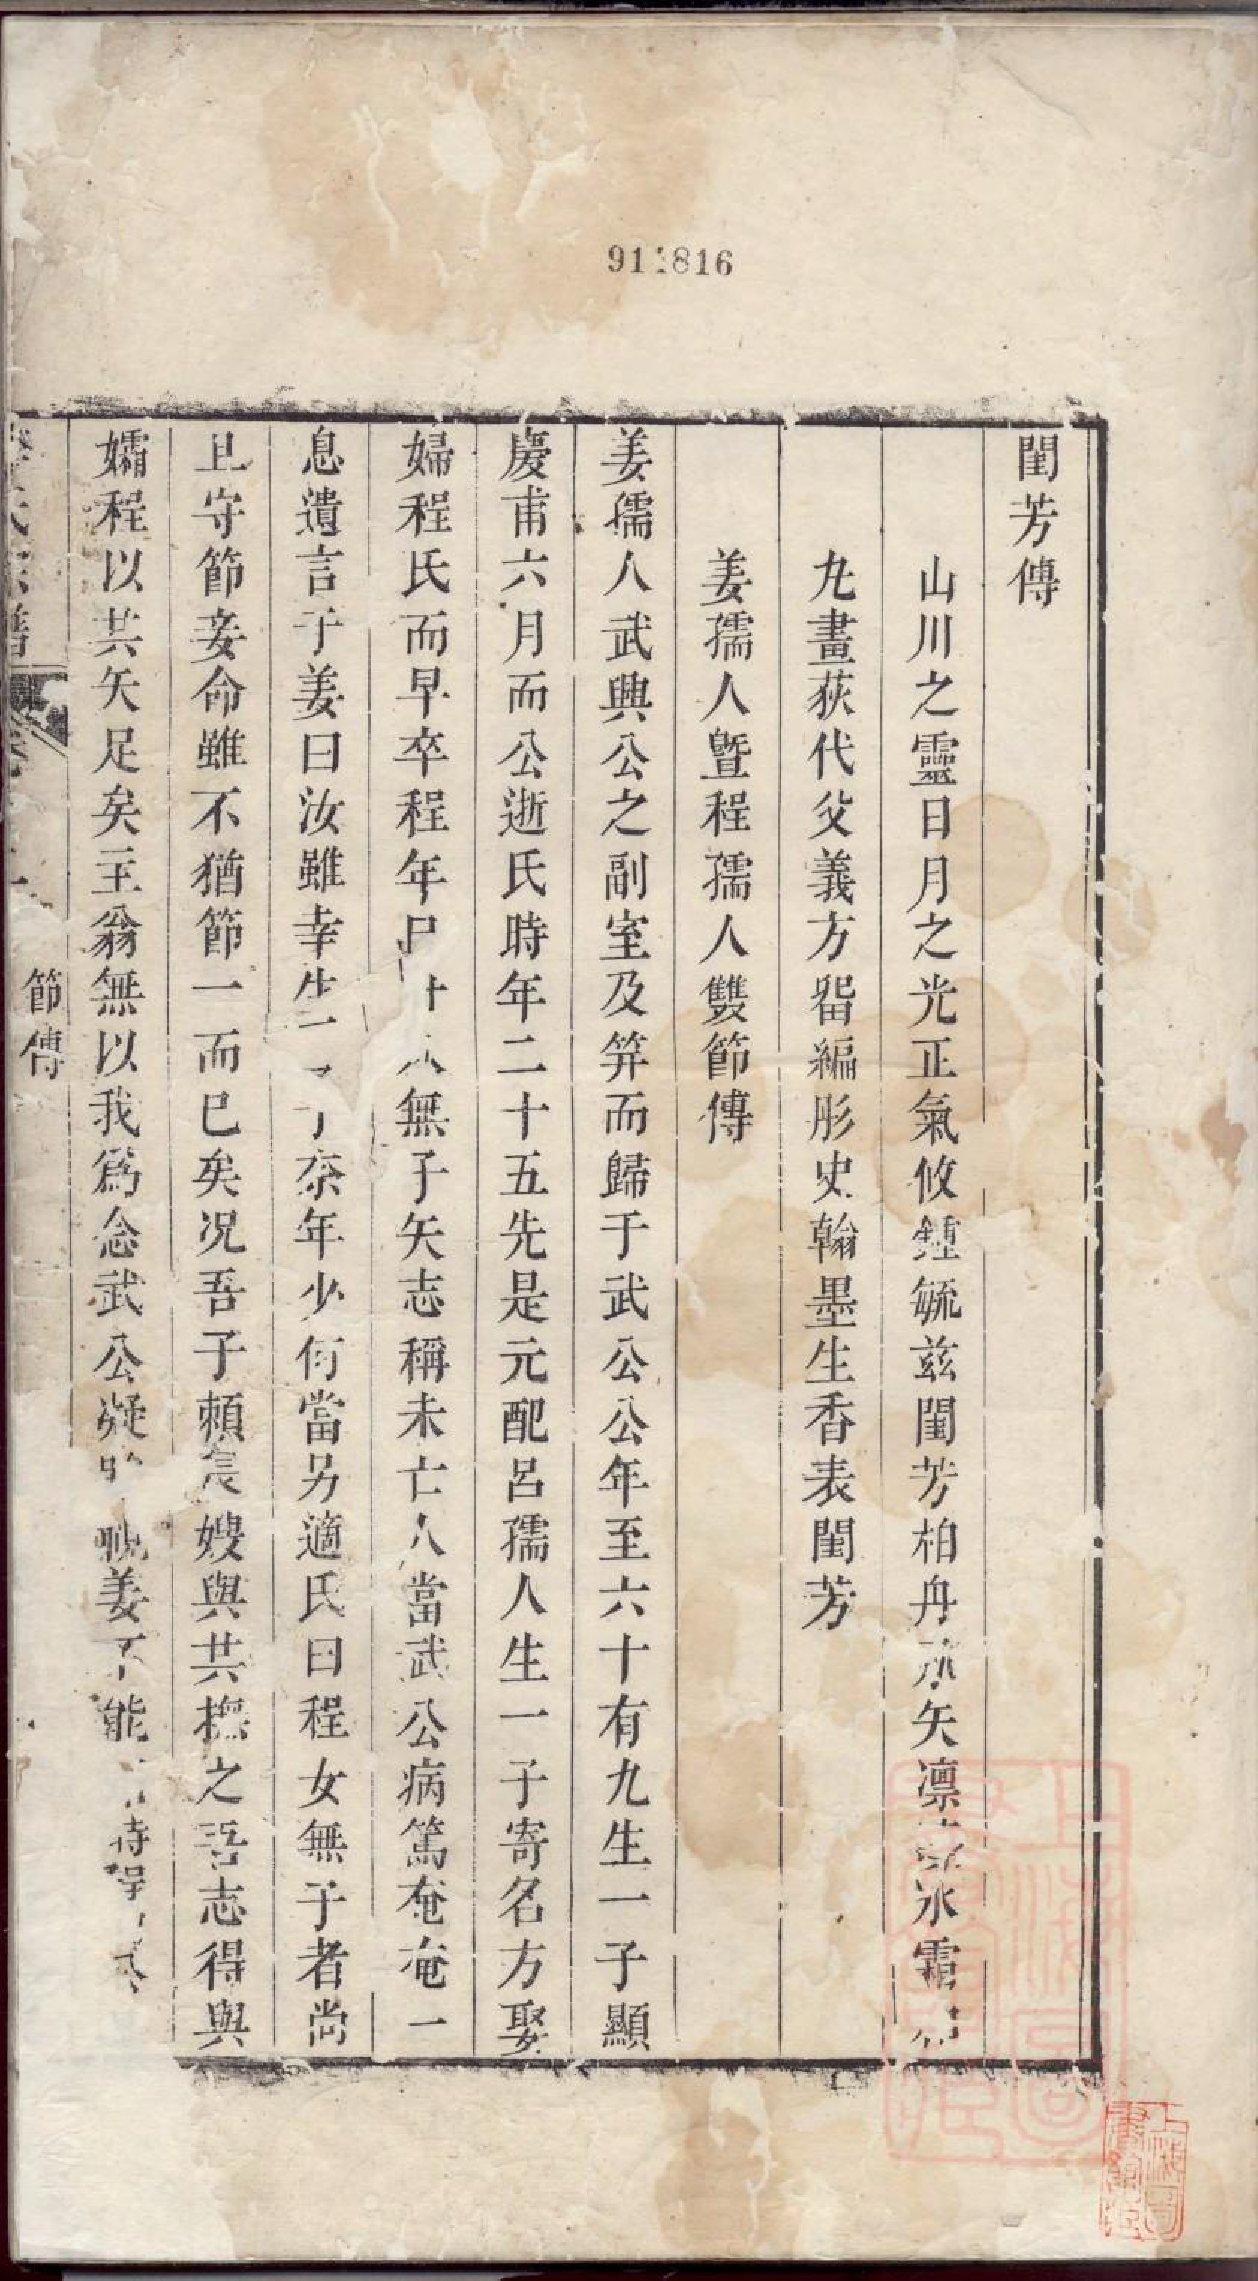 911816
閨芳傳
山川之靈日月之光正氣攸鍾毓兹閨芳柏舟永矢凛冰霜
九畫荻代父義方畱編彤史翰墨生香表閨芳
姜孺人曁程孺人雙節傳
姜孺人武興公之副室及笄而歸于武公公年至六十有九生一子顯
慶甫六月而公逝氏時年二十五先是元配呂孺人生一子寄名方娶
婦程氏而早卒程年無子矢志稱未亡人當武公病篤奄奄一
息遺言于姜曰汝雖幸生一子奈年少何當另適氏曰程女無子者尚
且守節妾命雖不猶節一而已矣况吾子頼長嫂與共撫之吾志得與
孀程以共矢足矣主翁無以我爲念武公凝姜不能待
節傳
上海圖書館藏
上海圖書館藏